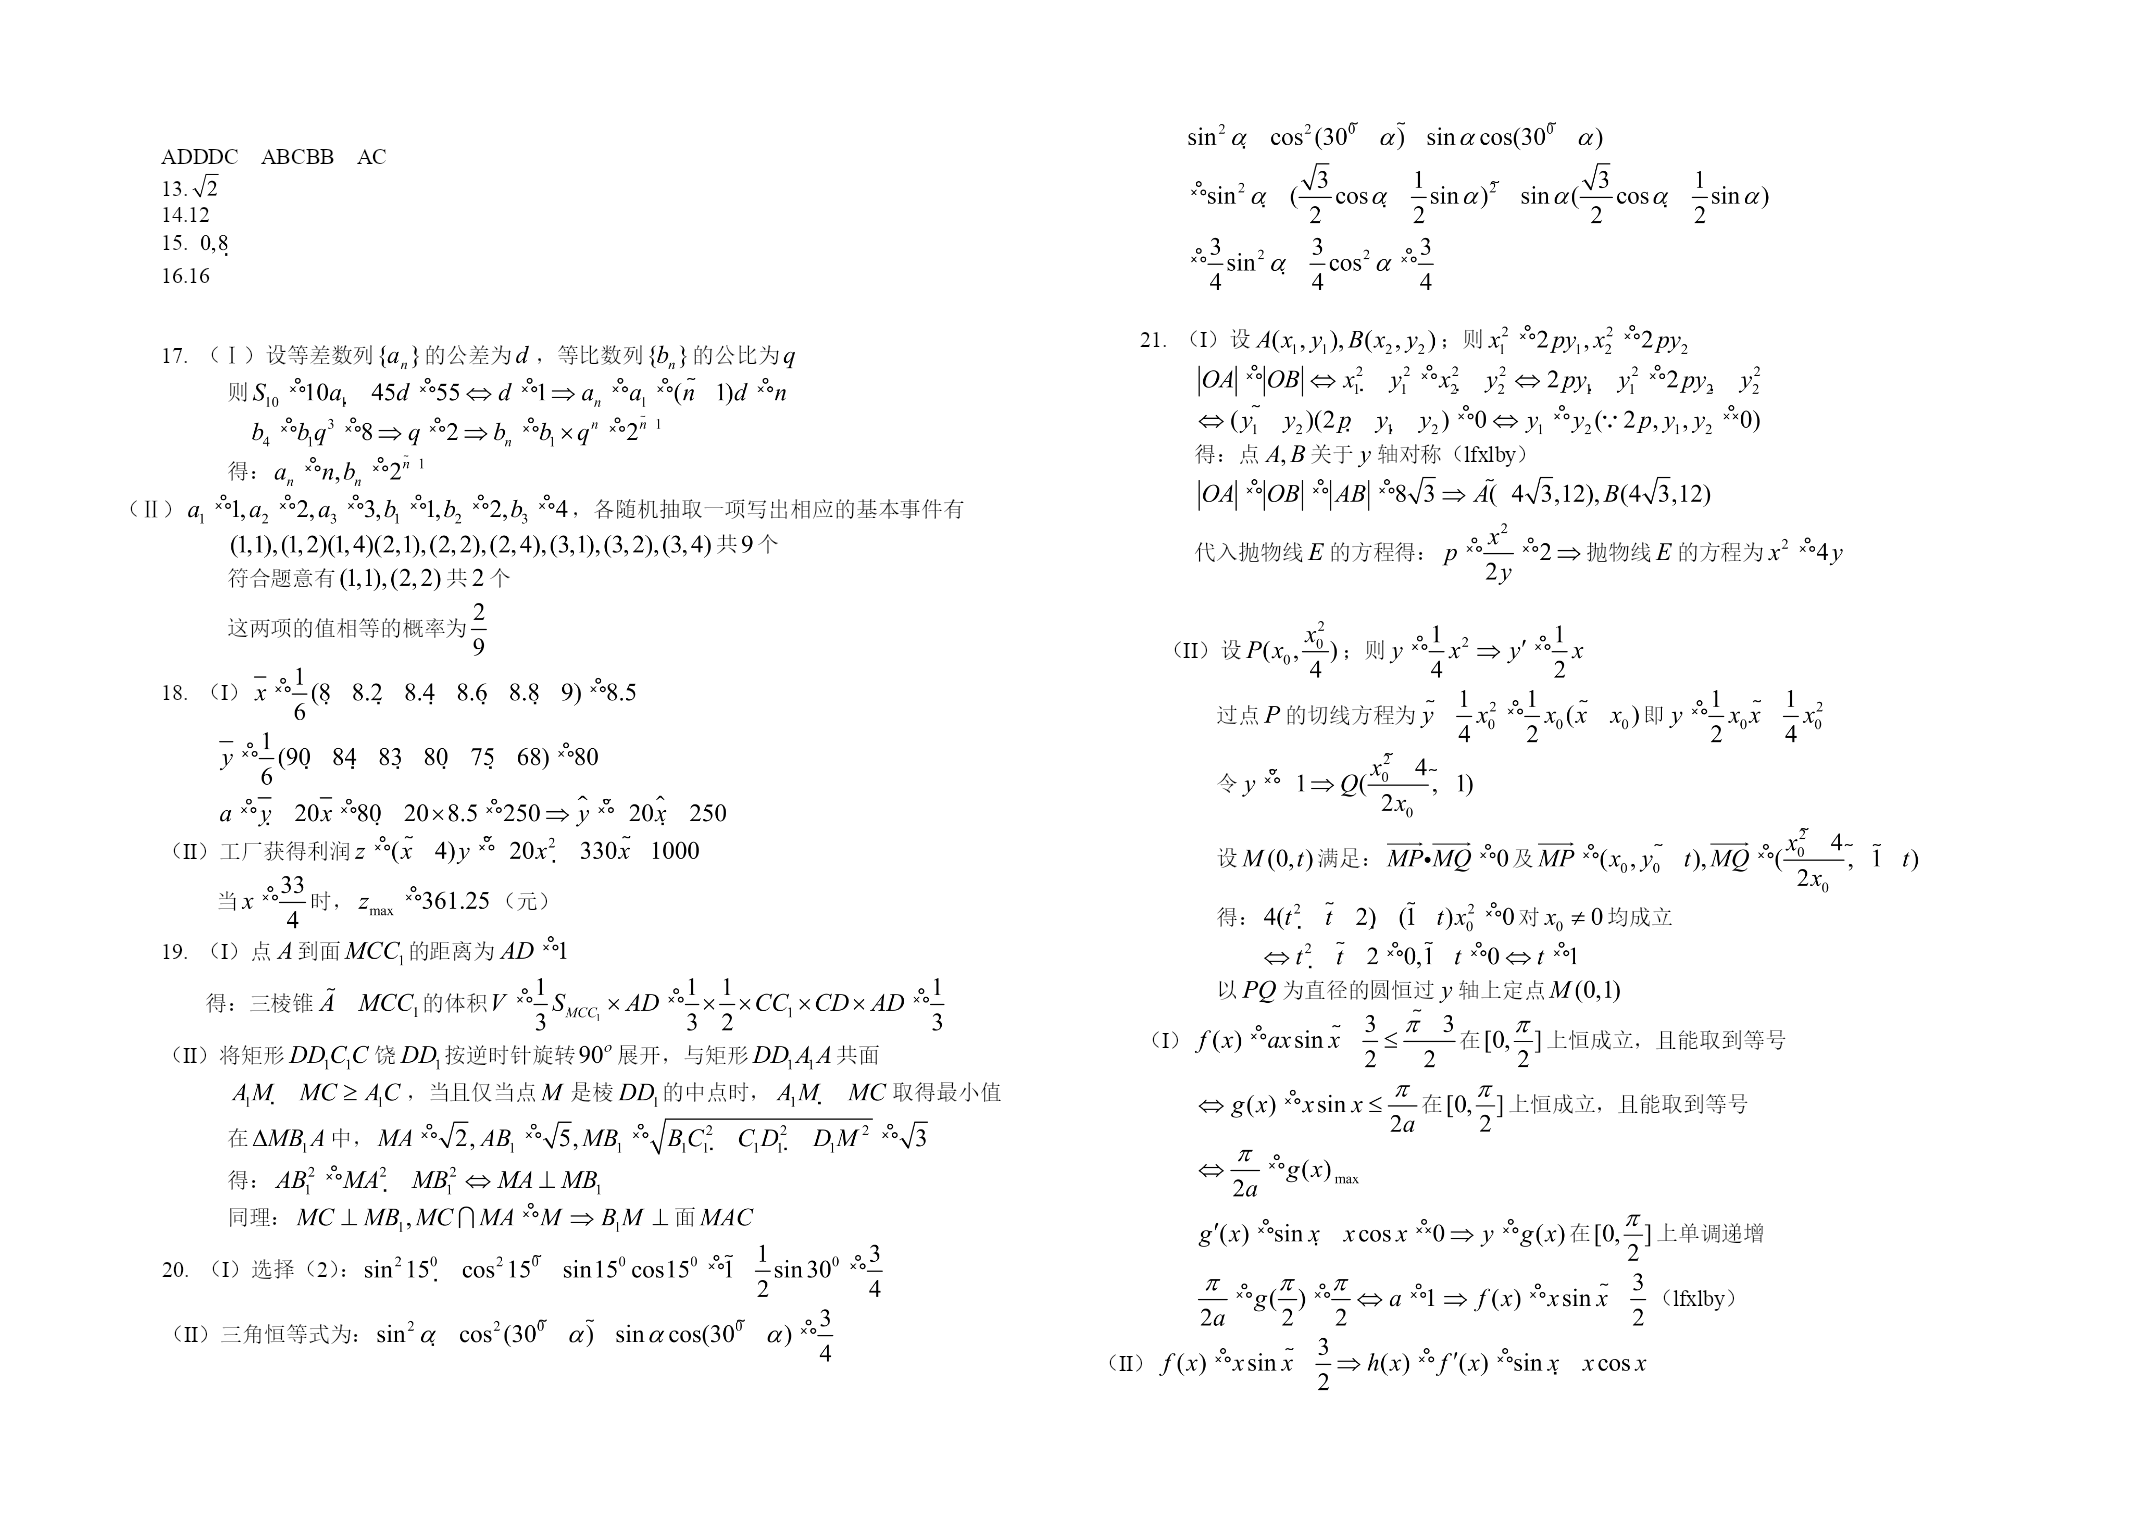 ADDDC ABCBB AC
13.√2
14.12
15. (0,8)
16.16
17. （Ⅰ）设等差数列{aₙ}的公差为d，等比数列{bₙ}的公比为q
则S₁₀=10a₁+45d=55⇔d=1⇒aₙ=a₁=(n-1)d=n
b₄=b₁q³=8⇒q=2⇒bₙ=b₁×qⁿ=2ⁿ⁻¹
得：aₙ=n,bₙ=2ⁿ⁻¹
（Ⅱ）a₁=1,a₂=2,a₃=3,b₁=1,b₂=2,b₃=4，各随机抽取一项写出相应的基本事件有
(1,1),(1,2)(1,4)(2,1),(2,2),(2,4),(3,1),(3,2),(3,4)共9个
符合题意有(1,1),(2,2)共2个
这两项的值相等的概率为2/9
18. （I）x̄=1/6(8+8.2+8.4+8.6+8.8+9)=8.5
ȳ=1/6(90+84+83+80+75+68)=80
a=ȳ+20x̄=80+20×8.5=250⇒ŷ=-20x̂+250
（II）工厂获得利润z=(x-4)y=-20x²+330x-1000
当x=33/4时，z_max=361.25（元）
19. （I）点A到面MCC₁的距离为AD=1
得：三棱锥A-MCC₁的体积V=1/3 S_MCC₁×AD=1/3×1/2×CC₁×CD×AD=1/3
（II）将矩形DD₁C₁C饶DD₁按逆时针旋转90°展开，与矩形DD₁A₁A共面
A₁M+MC≥A₁C，当且仅当点M是棱DD₁的中点时，A₁M+MC取得最小值
在ΔMB₁A中，MA=√2,AB₁=√5,MB₁=√(B₁C₁²+C₁D₁²+D₁M²)=√3
得：AB₁²=MA²+MB₁²⇔MA⊥MB₁
同理：MC⊥MB₁,MC⋂MA=M⇒B₁M⊥面MAC
20. （I）选择（2）：sin²15⁰+cos²15⁰-sin15⁰cos15⁰=1-1/2 sin30⁰=3/4
（II）三角恒等式为：sin²α+cos²(30⁰-α)-sinαcos(30⁰-α)=3/4
sin²α+cos²(30⁰-α)-sinαcos(30⁰-α)
=sin²α+(√3/2 cosα+1/2 sinα)²-sinα(√3/2 cosα+1/2 sinα)
=3/4 sin²α+3/4 cos²α=3/4
21. （I）设A(x₁,y₁),B(x₂,y₂)；则x₁²=2py₁,x₂²=2py₂
|OA|=|OB|⇔x₁²+y₁²=x₂²+y₂²⇔2py₁+y₁²=2py₂+y₂²
⇔(y₁-y₂)(2p+y₁+y₂)=0⇔y₁=y₂(∵2p,y₁,y₂>0)
得：点A,B关于y轴对称（lfxlby）
|OA|=|OB|=|AB|=8√3⇒A(-4√3,12),B(4√3,12)
代入抛物线E的方程得：p=x²/2y=2⇒抛物线E的方程为x²=4y
（II）设P(x₀,x₀²/4)；则y=1/4 x²⇒y′=1/2 x
过点P的切线方程为y-1/4 x₀²=1/2 x₀(x-x₀)即y=1/2 x₀x-1/4 x₀²
令y=-1⇒Q((x₀²-4)/2x₀,-1)
设M(0,t)满足：MP•MQ=0及MP=(x₀,y₀-t),MQ=((x₀²-4)/2x₀,-1-t)
得：4(t²+t-2)+(1-t)x₀²=0对x₀≠0均成立
⇔t²+t-2=0,1-t=0⇔t=1
以PQ为直径的圆恒过y轴上定点M(0,1)
（I）f(x)=axsinx-3/2≤(π-3)/2在[0,π/2]上恒成立，且能取到等号
⇔g(x)=xsinx≤π/2a在[0,π/2]上恒成立，且能取到等号
⇔π/2a=g(x)max
g′(x)=sinx+xcosx>0⇒y=g(x)在[0,π/2]上单调递增
π/2a=g(π/2)=π/2⇔a=1⇒f(x)=xsinx-3/2（lfxlby）
（II）f(x)=xsinx-3/2⇒h(x)=f′(x)=sinx+xcosx